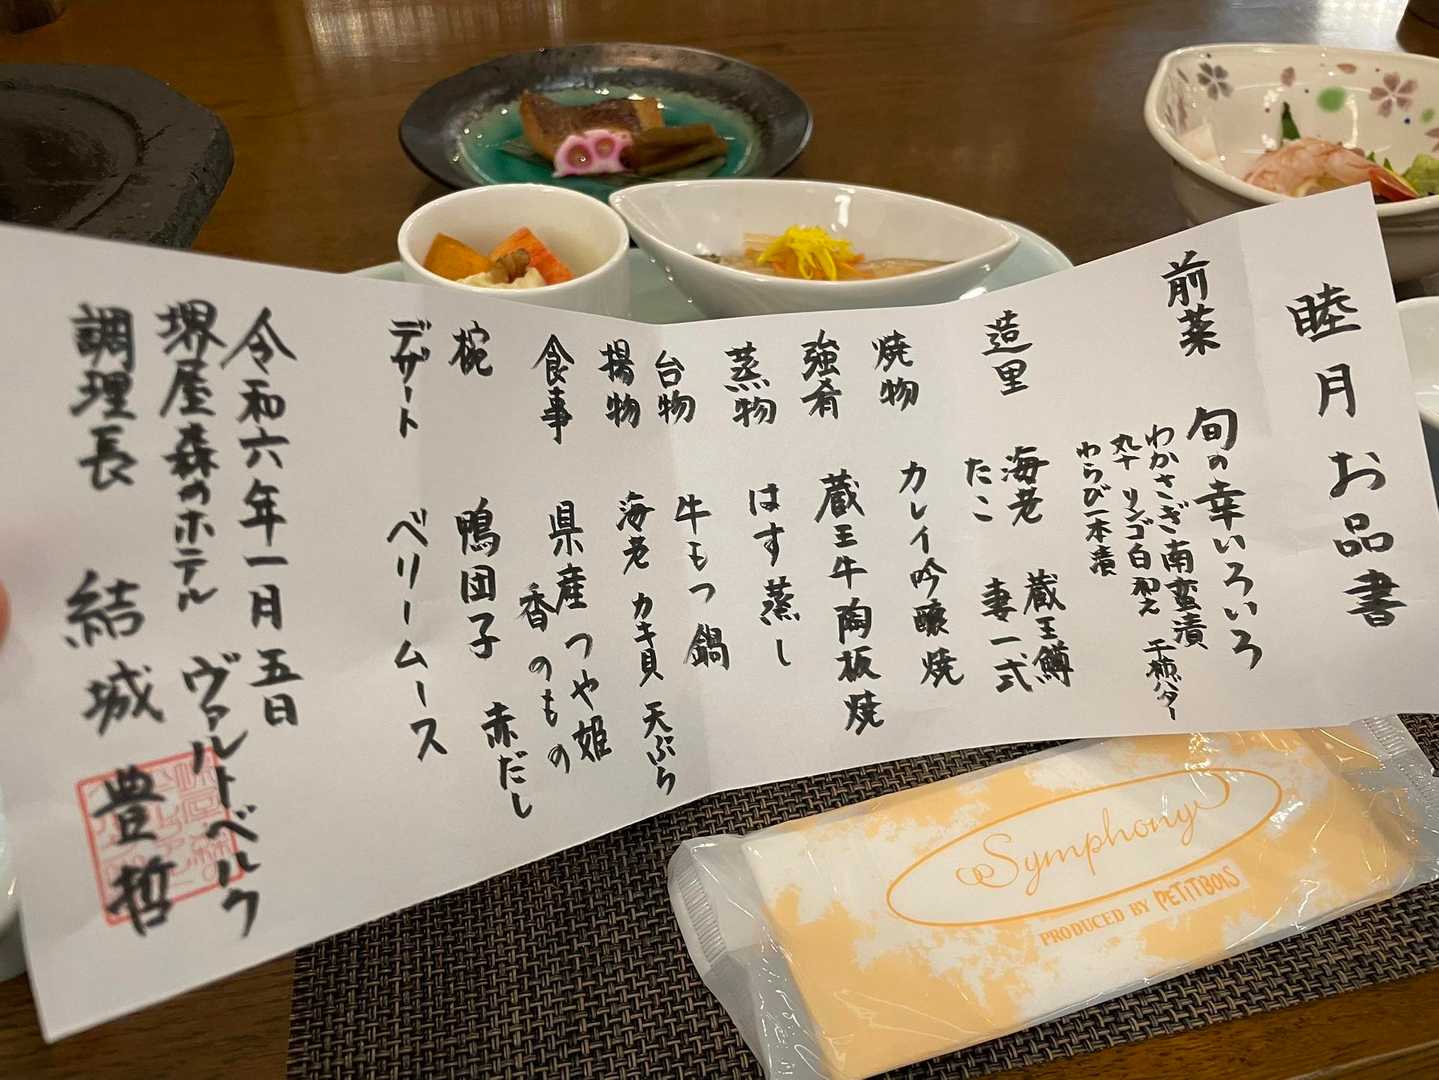 睦月お品書
前菜 旬の幸いろいろ
わかさぎ南蛮漬 干柿バター
丸十リンゴ白和え
わらび一本漬
造里 海老 蔵王鱒
たこ 妻一式
焼物 カレイ吟醸焼
強肴 蔵王牛陶板焼
蒸物 はす蒸し
台物 牛もつ鍋
揚物 海老 カキ貝 天ぷら
食事 県産つや姫
香のもの
椀 鴨団子 赤だし
デザート ベリームース
令和六年一月五日
堺屋森のホテル ヴァルトベルク
調理長 結城豊哲
Symphony
PRODUCED BY PETITBOIS